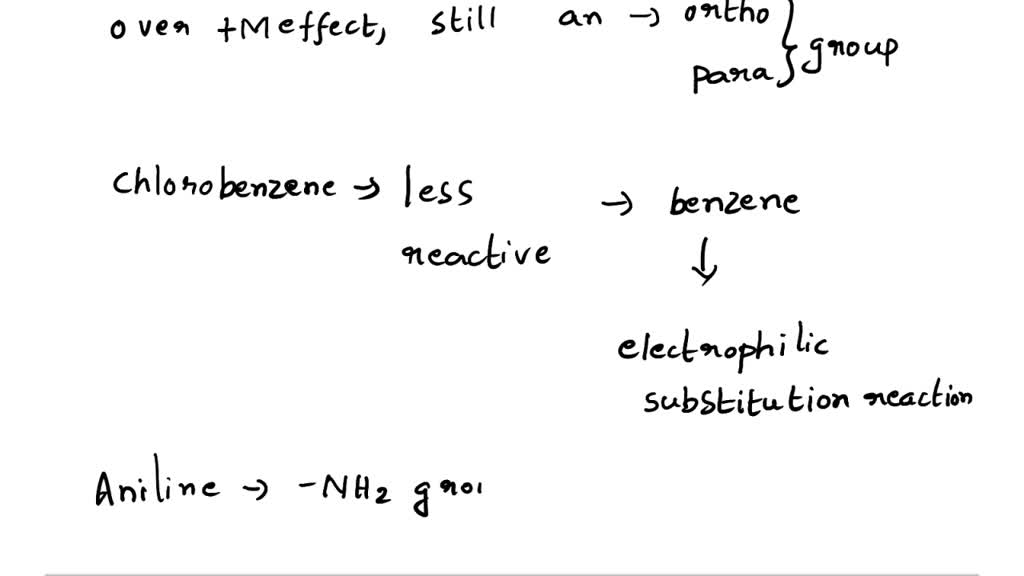 over +M effect, still an → ortho
para } group
Chlorobenzene → less → benzene
reactive ↓
electrophilic
substitution reaction
Aniline → -NH2 grou